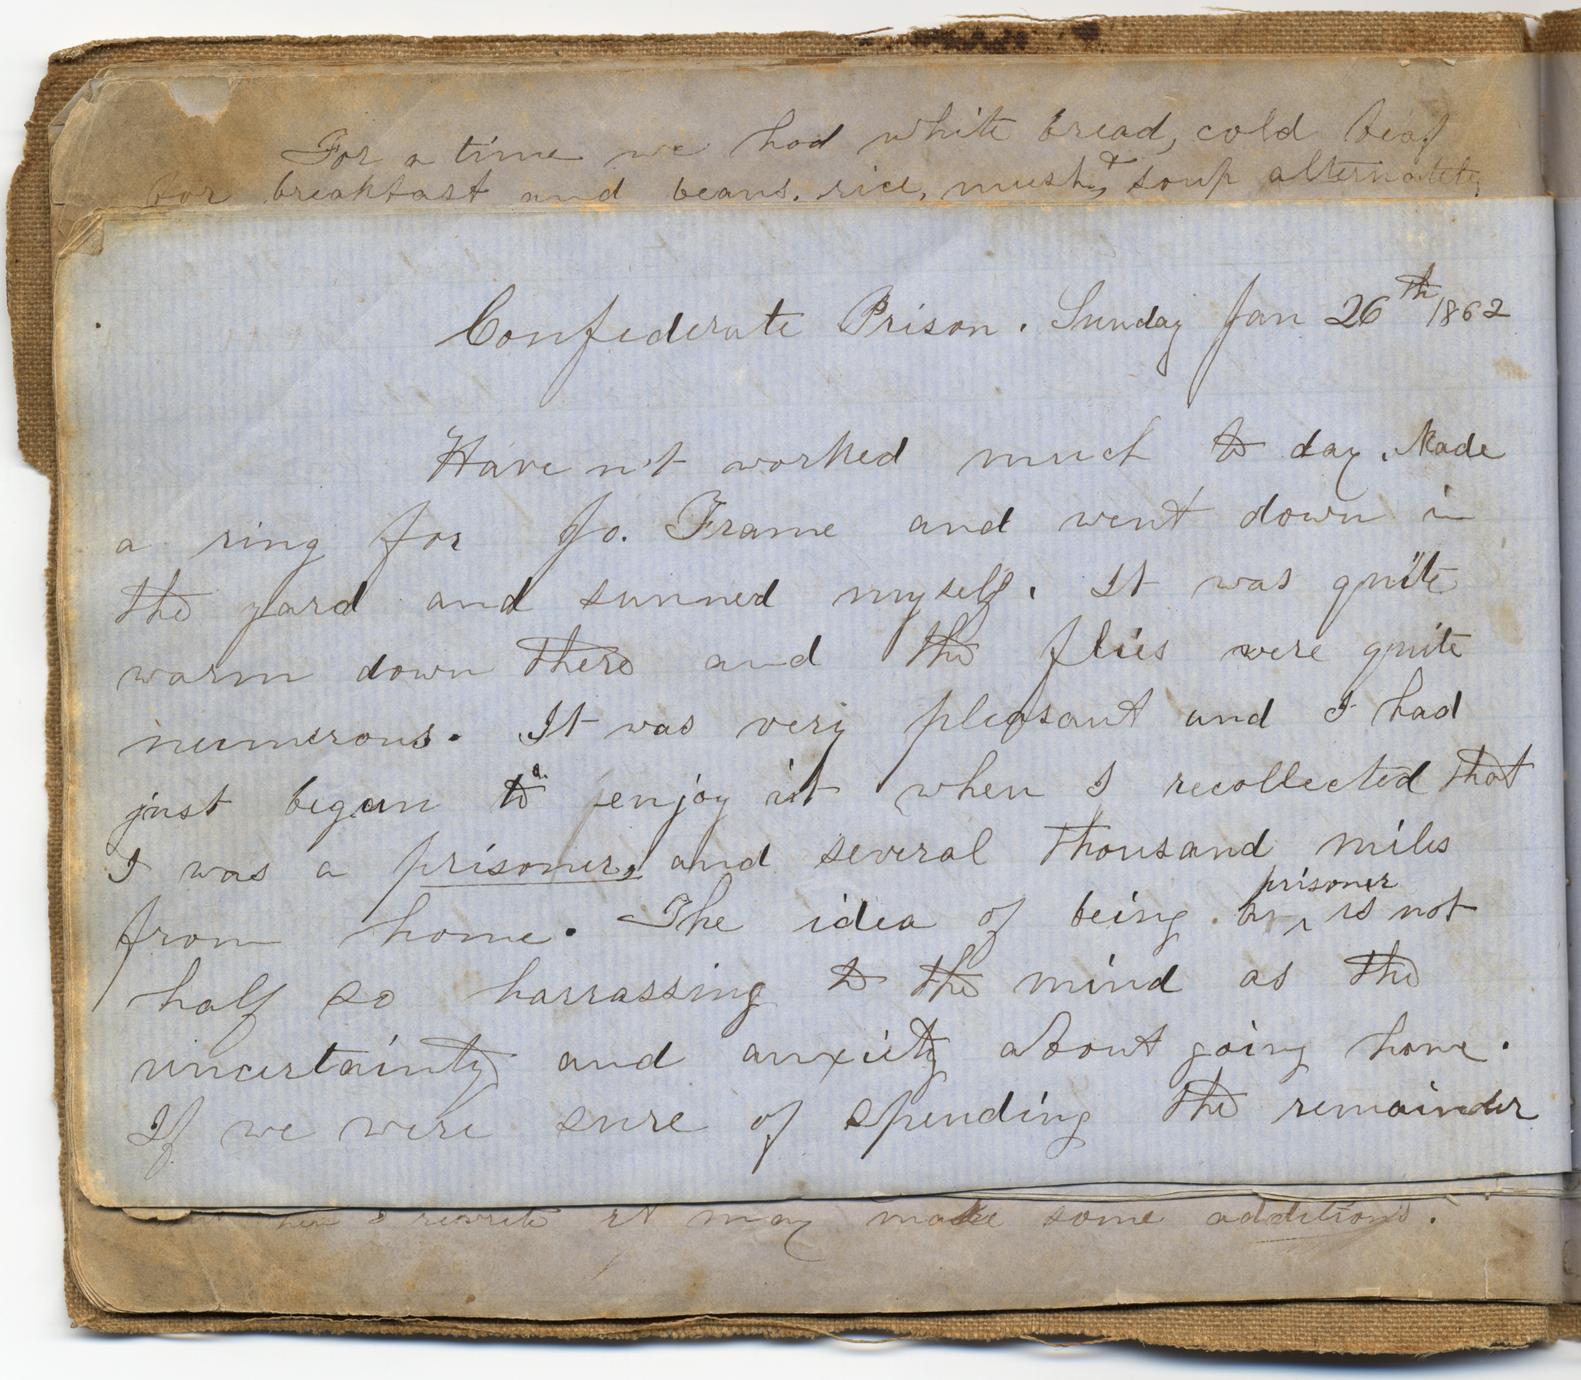 For a time we had white bread, cold beaf
for breakfast and beans, rice, mush, & soup alternately
Confederate Prison. Sunday Jan 26th 1862
Have n't worked much to day. Made
a ring for Jo. Frame and went down in
the yard and sunned myself. It was quite
warm down there and the flies were quite
numerous. It was very pleasant and I had
just began to enjoy it when I recollected that
I was a prisoner, and several thousand miles
from home. The idea of being a prisoner is not
half so harrassing to the mind as the
uncertainty and anxiety about going home.
If we were sure of spending the remainder
I rewrite it may make some additions.